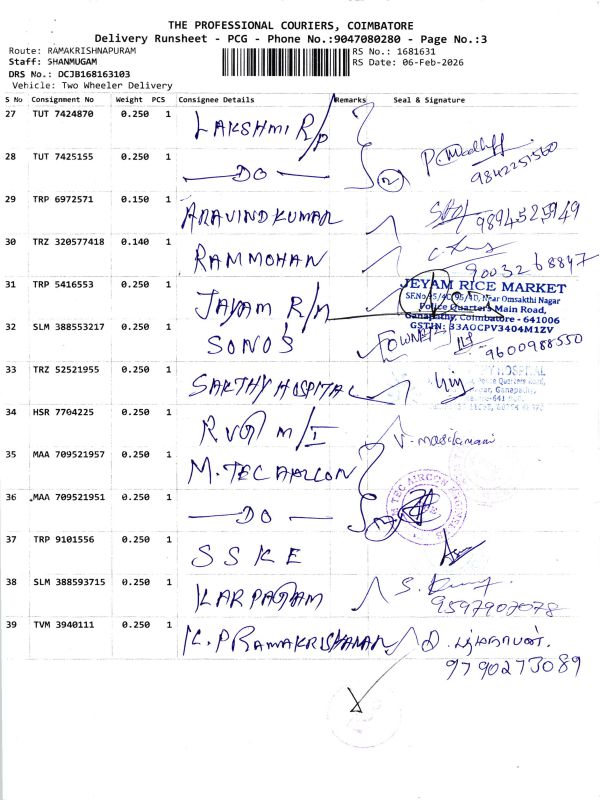 THE PROFESSIONAL COURIERS, COIMBATORE
Delivery Runsheet - PCG - Phone No.:9047080280 - Page No.:3
Route: RAMAKRISHNAPURAM
RS No.: 1681631
Staff: SHANMUGAM
RS Date: 06-Feb-2026
DRS No.: DCJB168163103
Vehicle: Two Wheeler Delivery
S No Consignment No Weight PCS Consignee Details Remarks Seal & Signature
27 TUT 7424870 0.250 1 LAKSHMI R/p
28 TUT 7425155 0.250 1 — DO — 2 9842251560
29 TRP 6972571 0.150 1 ARAVIND KUMAR 9894525949
30 TRZ 320577418 0.140 1 RAMMOHAN 9003268847
31 TRP 5416553 0.250 1 JAYAM R/M
JEYAM RICE MARKET
SF.No.95/4C, 95/4D, Near Omsakthi Nagar
Police Quarters Main Road,
Ganapathy, Coimbatore - 641006
GSTIN: 33AOCPV3404M1ZV
32 SLM 388553217 0.250 1 SONO'S 9600988550
33 TRZ 52521955 0.250 1 SAKTHY HOSPITAL
HOSPITAL
Police Quarters Road,
Ganapathy
34 HSR 7704225 0.250 1 RVG M/I V. masilamani
35 MAA 709521957 0.250 1 M. TEC AIRCON
36 MAA 709521951 0.250 1 — DO — 2
M TEC AIRCON
37 TRP 9101556 0.250 1 SSKE
38 SLM 388593715 0.250 1 KARPAGAM 9597907078
39 TVM 3940111 0.250 1 K. P RAMAKRISHANAN
9790273089